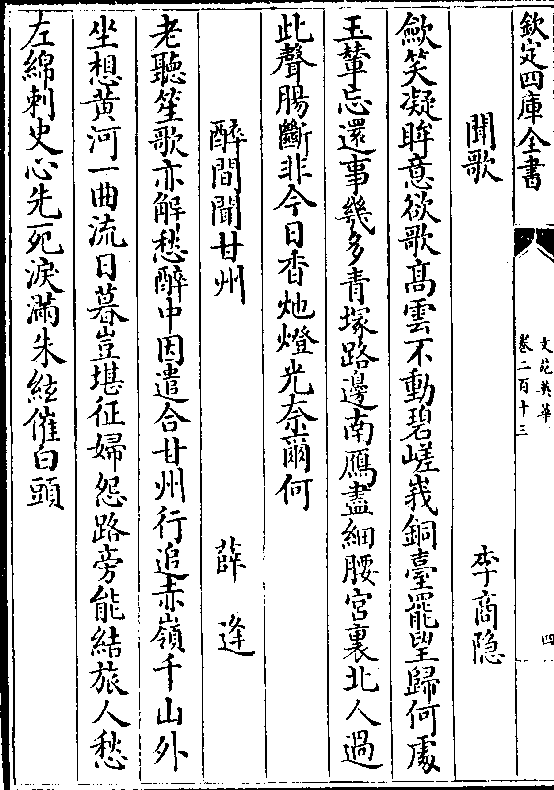 欽定四庫全書
文苑英華
卷二百十三
四
聞歌
李商隐
斂笑凝眸意欲歌高雲不動碧嵯峩銅臺罷望歸何處
玉輦忘還事幾多青塚路邊南鴈盡細腰宫裏北人過
此聲腸斷非今日香灺燈光奈爾何
醉間聞甘州
薛逢
老聽笙歌亦解愁醉中因遣合甘州行追赤嶺千山外
坐想黄河一曲流日暮豈堪征婦怨路旁能結旅人愁
左綿刺史心先死淚滿朱絃催白頭